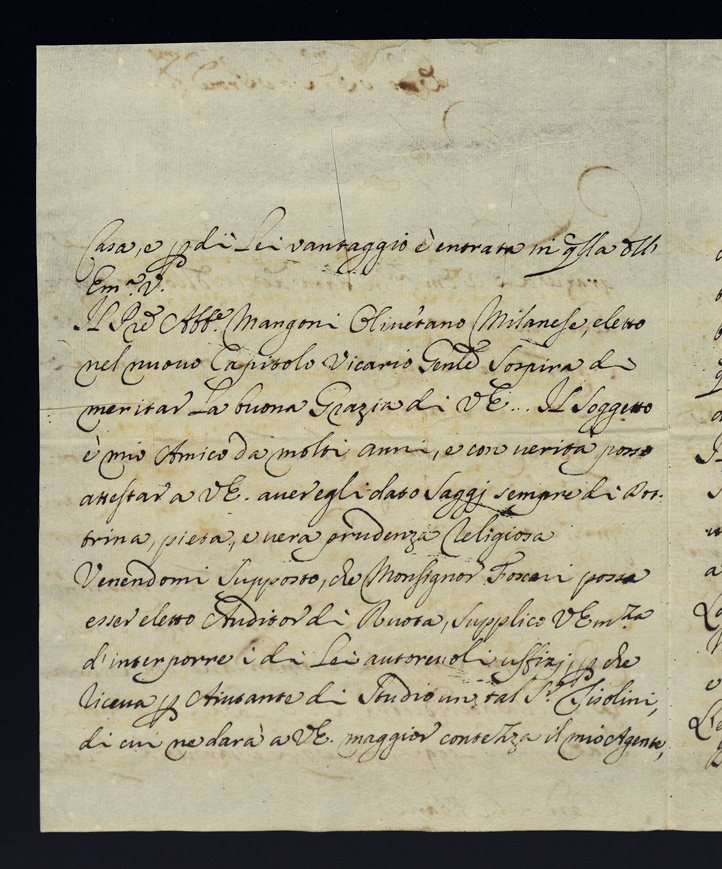 Casa, e p di Lei vantaggio è entrata in qlla dell'
Em.ª V.
Il Pre Abb.e Mangoni Olivetano Milanese, eletto
nel nuovo Capitolo Vicario Genle Sospira di
meritar La buona Grazia di VE... Il Soggetto
è mio Amico da molti anni, e con verità posso
attestar a VE. aver egli dato Saggj sempre di Dot-
trina, pietà, e vera prudenza Religiosa
Venendomi Supposto, che Monsignor Foscari possa
esser eletto Auditor di Ruota, Supplico VEmza
d'interporre i di Lei autorevoli uffizj, p che
riceva p Aiutante di Studio un tal S.r Tisolini,
di cui ne darà a VE. maggior contezza il mio Agente,